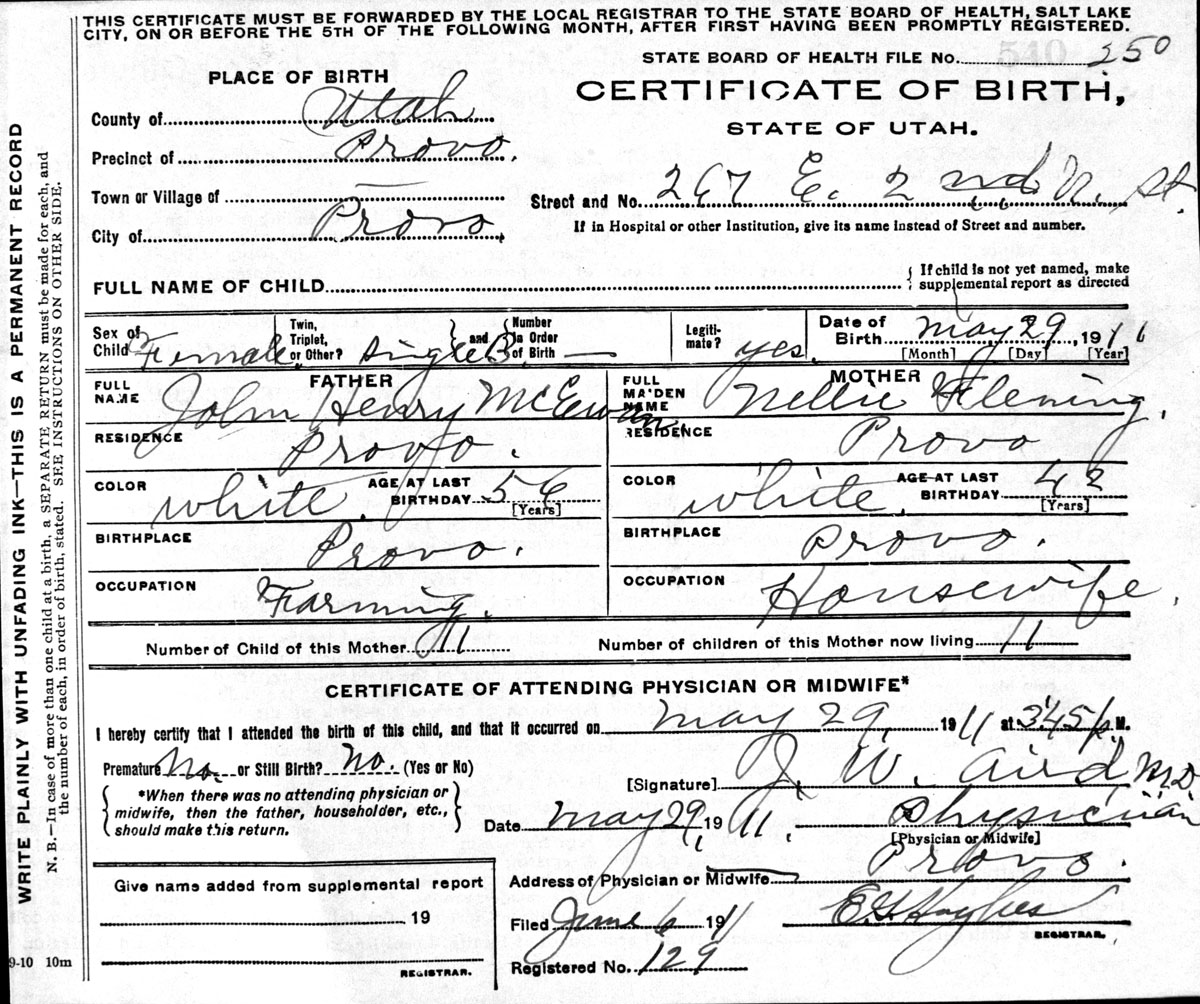 THIS CERTIFICATE MUST BE FORWARDED BY THE LOCAL REGISTRAR TO THE STATE BOARD OF HEALTH, SALT LAKE
CITY, ON OR BEFORE THE 5TH OF THE FOLLOWING MONTH, AFTER FIRST HAVING BEEN PROMPTLY REGISTERED.
WRITE PLAINLY WITH UNFADING INK—THIS IS A PERMANENT RECORD
N. B.—In case of more than one child at a birth, a SEPARATE RETURN must be made for each, and
the number of each, in order of birth, stated. SEE INSTRUCTIONS ON OTHER SIDE.
STATE BOARD OF HEALTH FILE No. 250
PLACE OF BIRTH
CERTIFICATE OF BIRTH,
STATE OF UTAH.
County of Utah
Precinct of Provo.
Town or Village of —
City of Provo,
Street and No. 267 E. 2nd N. St.
If in Hospital or other Institution, give its name instead of Street and number.
FULL NAME OF CHILD
{ If child is not yet named, make
supplemental report as directed
Sex of Child Female. Twin, Triplet, or Other? Single } and { Number in Order of Birth — Legiti-mate? yes. Date of Birth May 29, 1911
[Month] [Day] [Year]
FATHER
FULL NAME John Henry McEwan.
RESIDENCE Provo.
COLOR white. AGE AT LAST BIRTHDAY 56
[Years]
BIRTHPLACE Provo.
OCCUPATION Farming.
MOTHER
FULL MAIDEN NAME Nellie Fleming.
RESIDENCE Provo
COLOR white. AGE AT LAST BIRTHDAY 42
[Years]
BIRTHPLACE Provo.
OCCUPATION Housewife.
Number of Child of this Mother 11 Number of children of this Mother now living 11
CERTIFICATE OF ATTENDING PHYSICIAN OR MIDWIFE*
I hereby certify that I attended the birth of this child, and that it occurred on May 29, 1911 at 3:45 p. M.
Premature No. or Still Birth? No. (Yes or No)
[Signature] J. W. Aird, M.D.
{ *When there was no attending physician or
midwife, then the father, householder, etc.,
should make this return. }
Date May 29, 1911. Physician
[Physician or Midwife]
Address of Physician or Midwife Provo.
Give name added from supplemental report
19
REGISTRAR.
Filed June 6 1911 Hughes
REGISTRAR.
Registered No. 129
9-10 10m